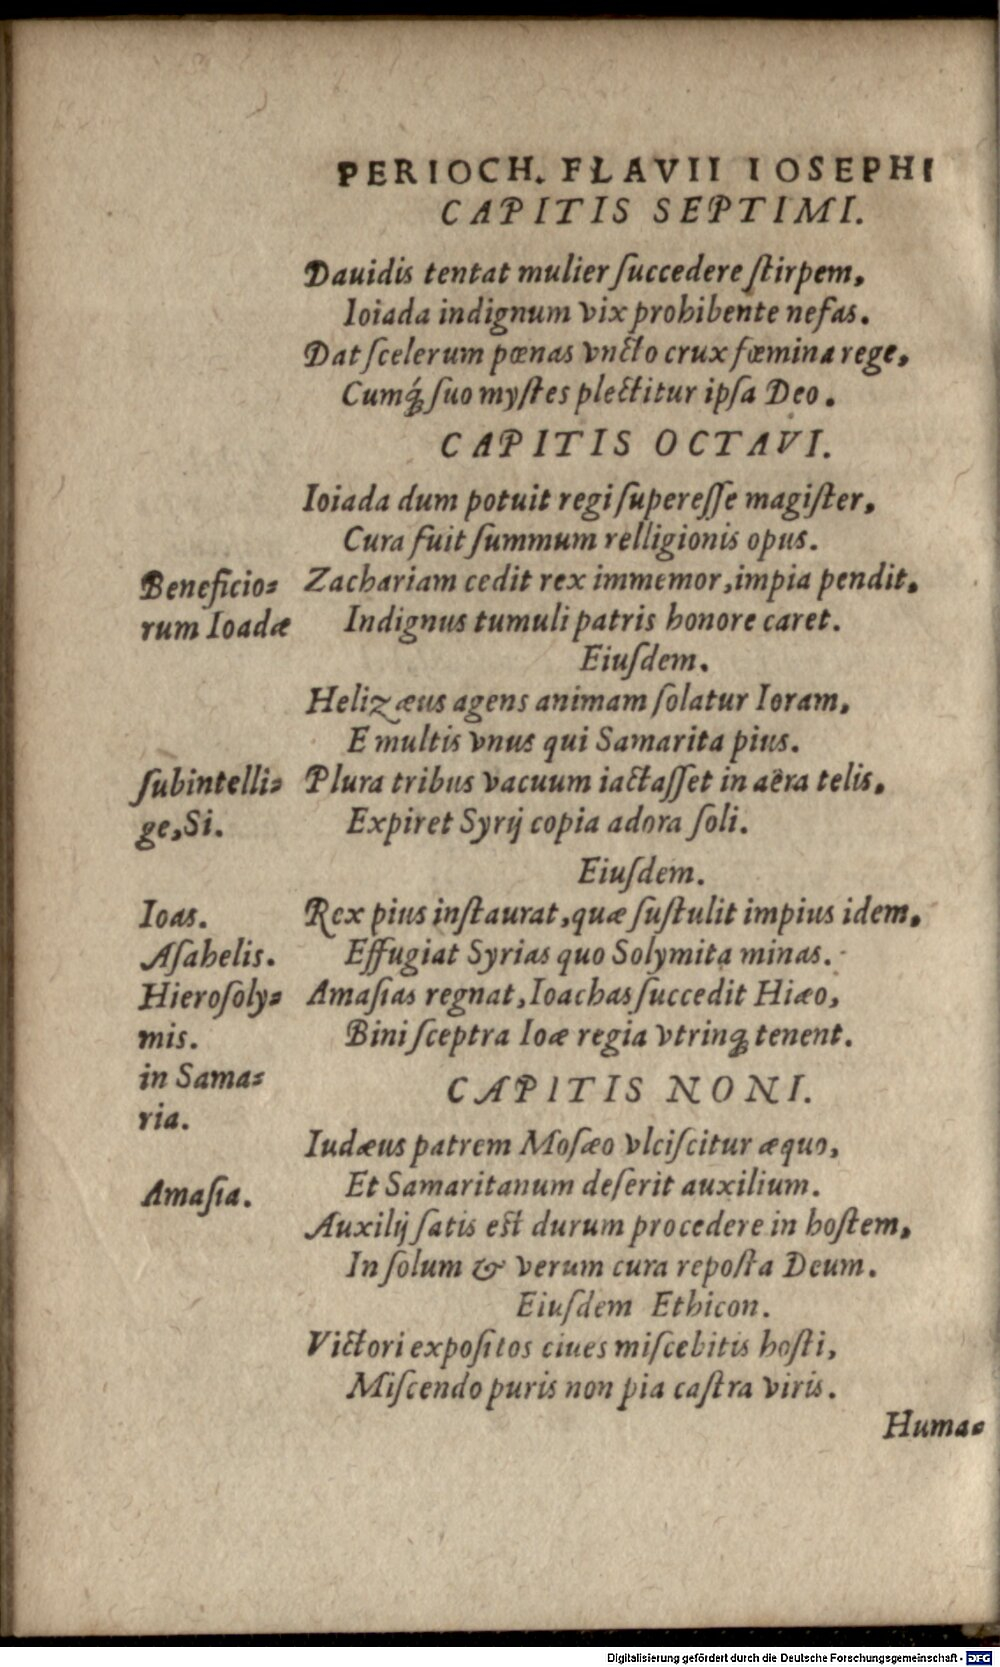 PERIOCH. FLAVII IOSEPHI
CAPITIS SEPTIMI.
Dauidis tentat mulier ſuccedere ſtirpem,
Ioiada indignum vix prohibente nefas.
Dat ſcelerum pœnas vncto crux fœmina rege,
Cumq́ꝫ ſuo myſtes plectitur ipſa Deo.
CAPITIS OCTAVI.
Ioiada dum potuit regi ſupereſſe magiſter,
Cura fuit ſummum relligionis opus.
Beneficio⸗
rum Ioadæ
Zachariam cedit rex immemor, impia pendit,
Indignus tumuli patris honore caret.
Eiuſdem.
Helizæus agens animam ſolatur Ioram,
E multis vnus qui Samarita pius.
ſubintelli⸗
ge, Si.
Plura tribus vacuum iactaſſet in aëra telis,
Expiret Syrij copia adora ſoli.
Eiuſdem.
Ioas.
Aſahelis.
Hieroſoly⸗
mis.
in Sama⸗
ria.
Rex pius inſtaurat, quæ ſuſtulit impius idem,
Effugiat Syrias quo Solymita minas.
Amaſias regnat, Ioachas ſuccedit Hiæo,
Bini ſceptra Ioæ regia vtrinqꝫ tenent.
CAPITIS NONI.
Amaſia.
Iudæus patrem Moſæo vlciſcitur æquo,
Et Samaritanum deſerit auxilium.
Auxilij ſatis eſt durum procedere in hoſtem,
In ſolum & verum cura repoſta Deum.
Eiuſdem Ethicon.
Victori expoſitos ciues miſcebitis hoſti,
Miſcendo puris non pia caſtra viris.
Huma⸗
Digitalisierung gefördert durch die Deutsche Forschungsgemeinschaft - DFG